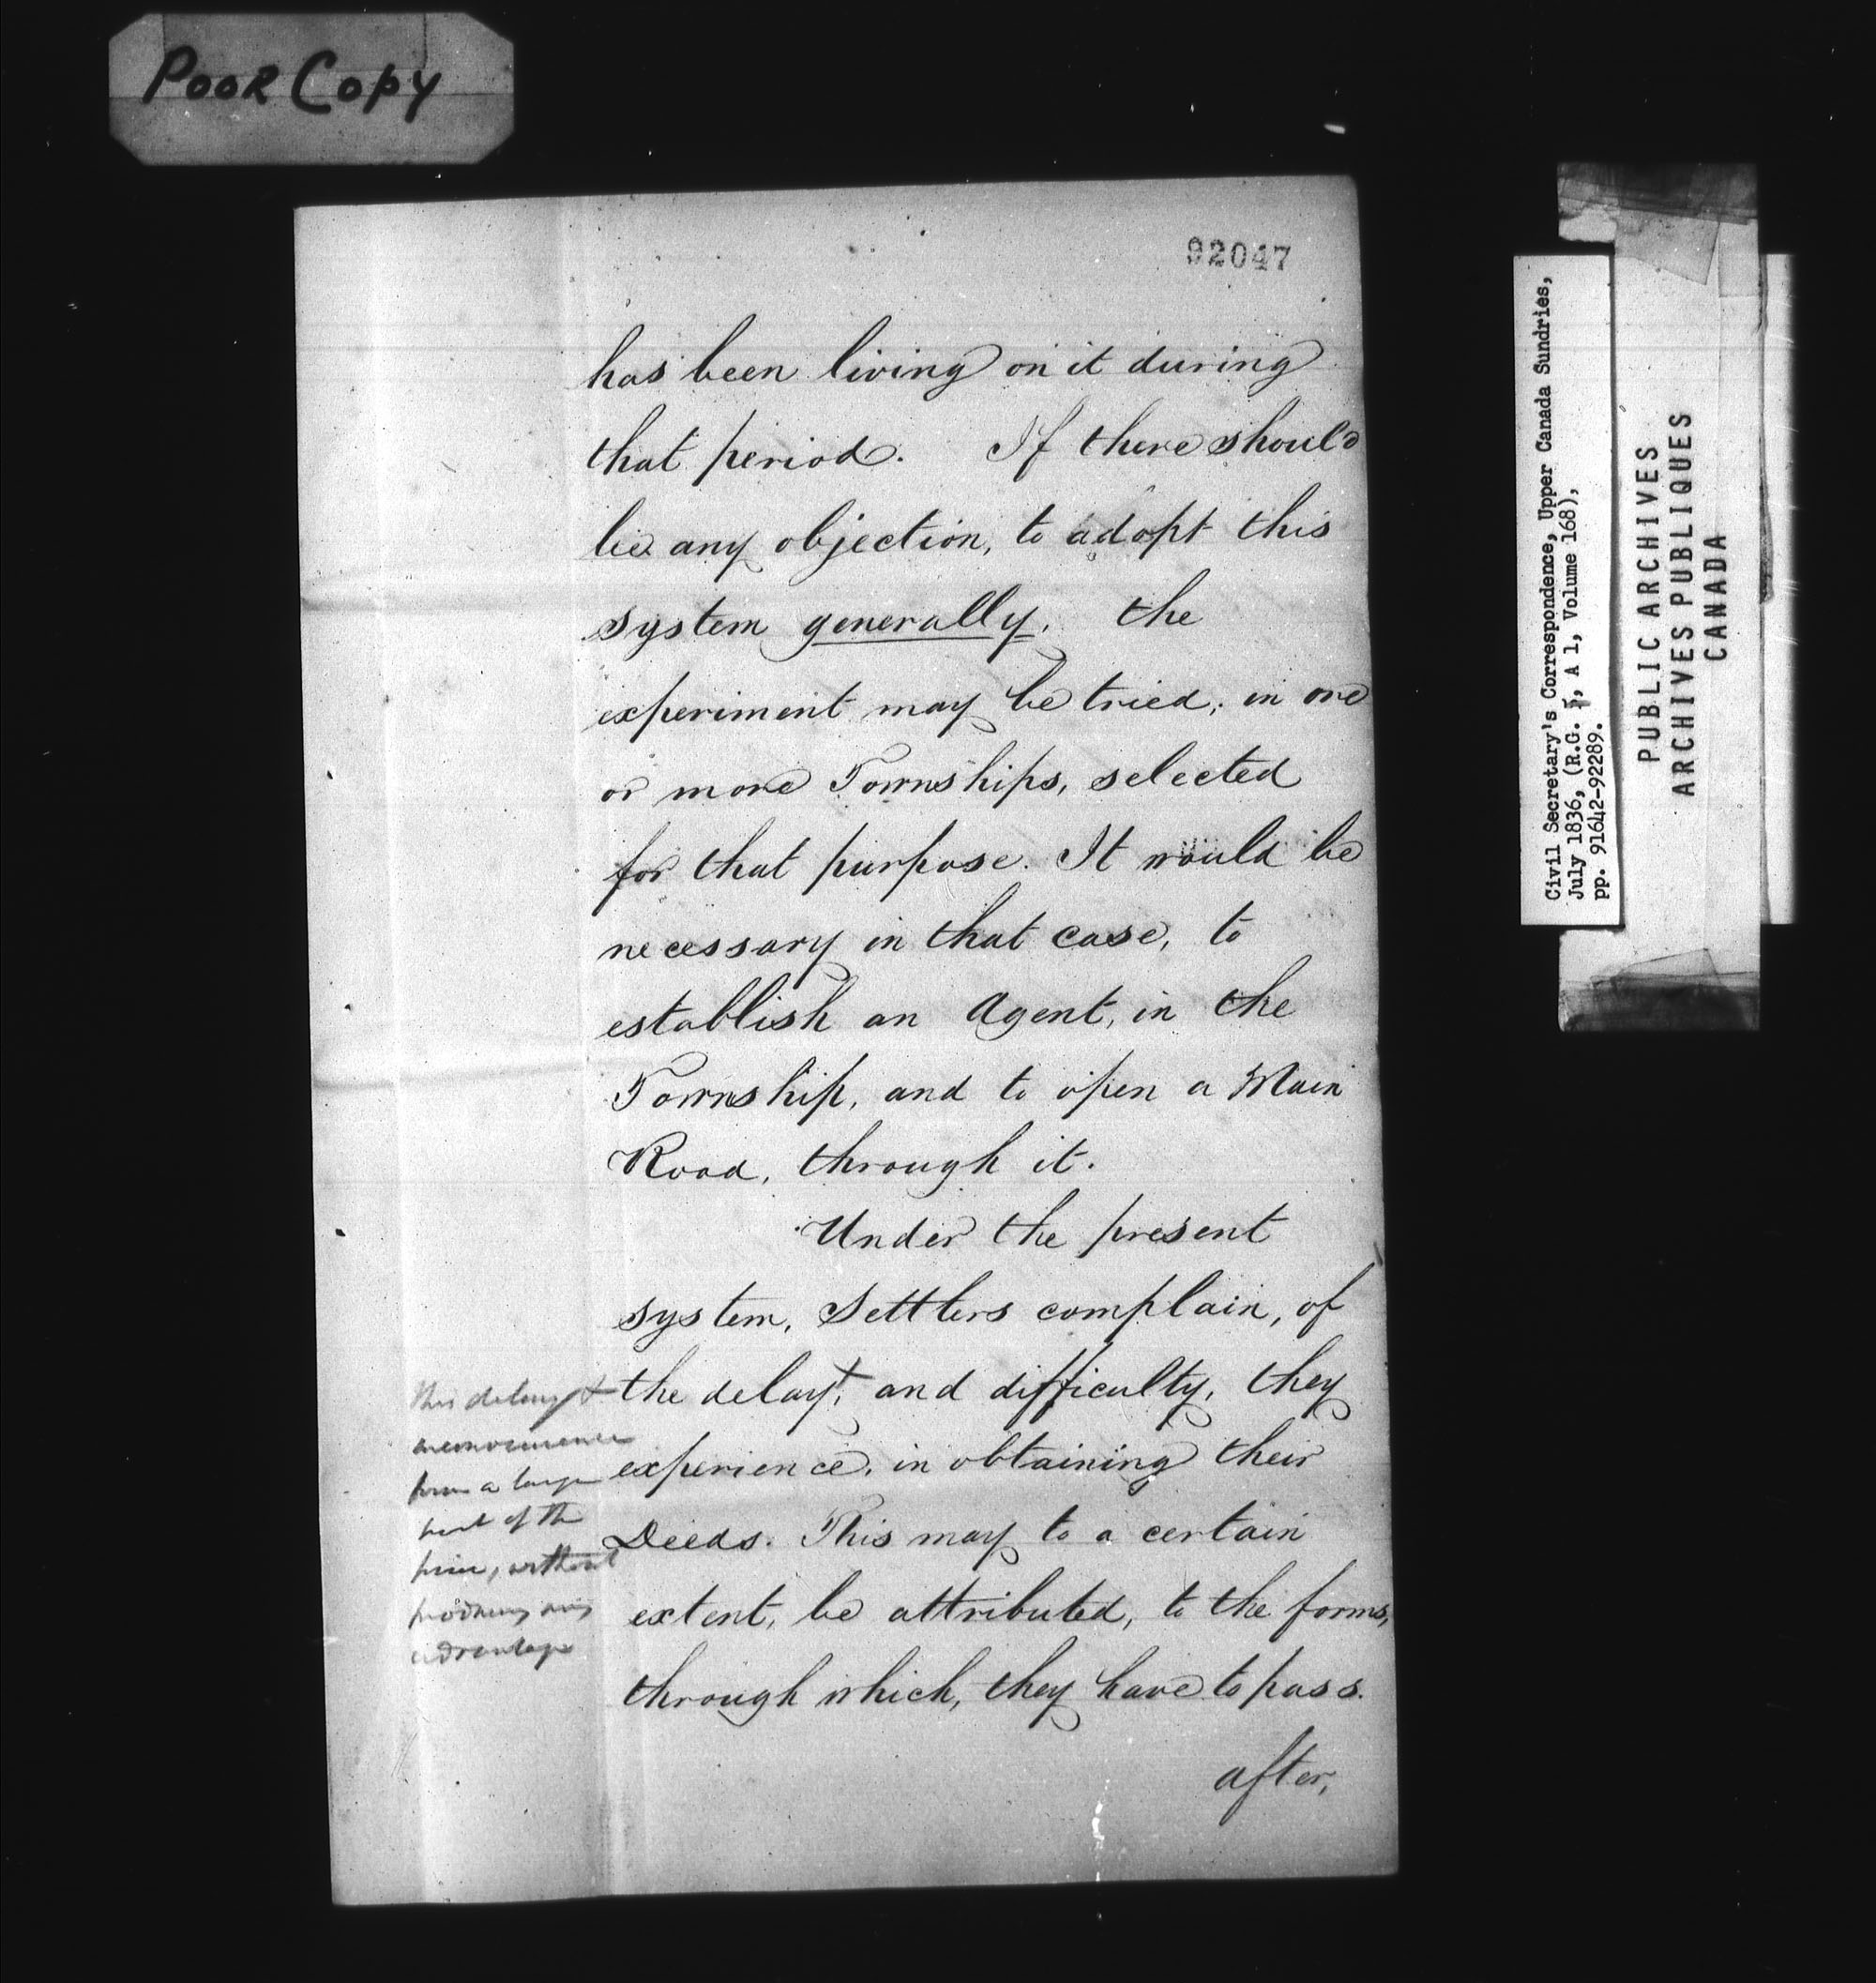 Poor Copy
92047
has been living on it during
that period. If there should
be any objection, to adopt this
system generally, the
experiment may be tried, in one
or more Townships, selected
for that purpose. It would be
necessary in that case, to
establish an Agent, in the
Township, and to open a Main
Road, through it.
Under the present
system, Settlers complain, of
the delay+, and difficulty, they
experience, in obtaining their
Deeds. This may to a certain
extent, be attributed, to the forms,
through which, they have to pass.
after,
This delay &
inconvenience
form a large
part of the
price, without
producing any
advantage
Civil Secretary's Correspondence, Upper Canada Sundries,
July 1836, (R.G. 5, A 1, Volume 168),
pp. 91642-92289.
PUBLIC ARCHIVES
ARCHIVES PUBLIQUES
CANADA